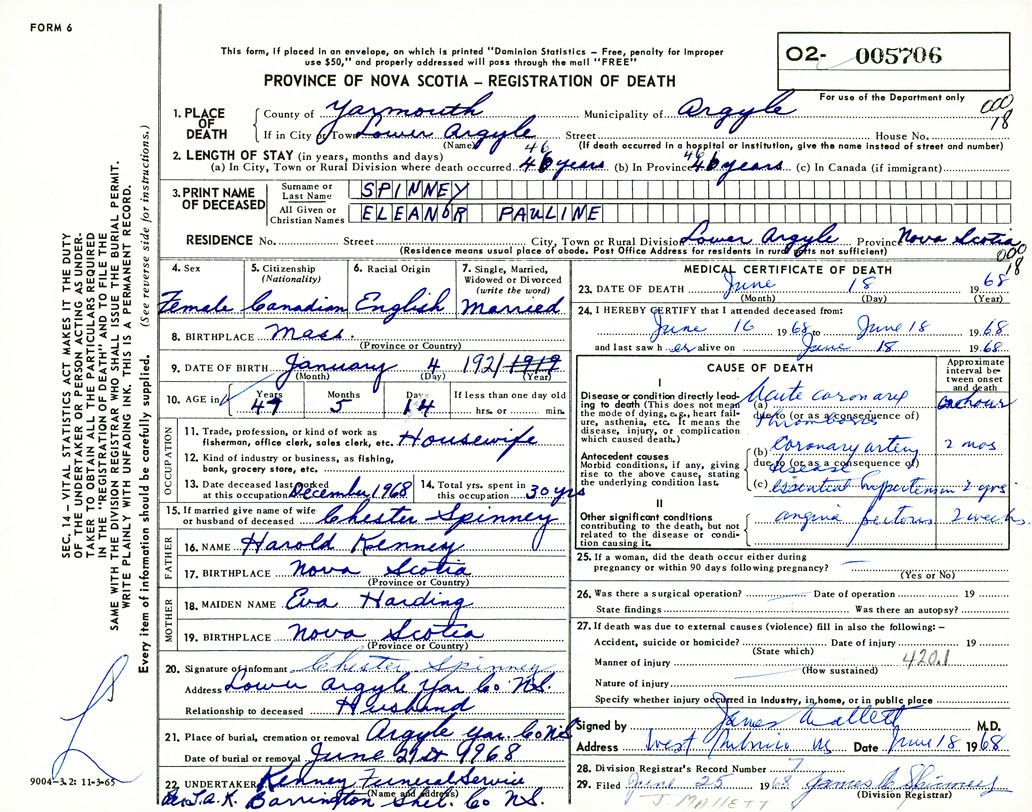 FORM 6
This form, if placed in an envelope, on which is printed "Dominion Statistics – Free, penalty for improper
use $50," and properly addressed will pass through the mail "FREE"
PROVINCE OF NOVA SCOTIA – REGISTRATION OF DEATH
O2- 005706
For use of the Department only
000
18
1. PLACE OF DEATH
County of Yarmouth Municipality of Argyle
If in City or Town Lower Argyle Street House No.
(Name) (If death occurred in a hospital or institution, give the name instead of street and number)
2. LENGTH OF STAY (in years, months and days) 46 46
(a) In City, Town or Rural Division where death occurred 46 years (b) In Province 46 years (c) In Canada (if immigrant)
3. PRINT NAME OF DECEASED
Surname or Last Name SPINNEY
All Given or Christian Names ELEANOR PAULINE
RESIDENCE No. Street City, Town or Rural Division Lower Argyle Province Nova Scotia
(Residence means usual place of abode. Post Office Address for residents in rural parts not sufficient)
000
18
4. Sex Female
5. Citizenship (Nationality) Canadian
6. Racial Origin English
7. Single, Married, Widowed or Divorced (write the word) Married
8. BIRTHPLACE Mass.
(Province or Country)
9. DATE OF BIRTH January 4 1921 1919
(Month) (Day) (Year)
10. AGE in Years 47 Months 5 Days 14 If less than one day old hrs. or min.
OCCUPATION
11. Trade, profession, or kind of work as Housewife
fisherman, office clerk, sales clerk, etc.
12. Kind of industry or business, as fishing,
bank, grocery store, etc.
13. Date deceased last worked at this occupation December 1968
14. Total yrs. spent in this occupation 30 yrs
15. If married give name of wife or husband of deceased Chester Spinney
FATHER
16. NAME Harold Kenney
17. BIRTHPLACE Nova Scotia
(Province or Country)
MOTHER
18. MAIDEN NAME Eva Harding
19. BIRTHPLACE Nova Scotia
(Province or Country)
20. Signature of informant Chester Spinney
Address Lower Argyle Yar Co N.S.
Relationship to deceased Husband
21. Place of burial, cremation or removal Argyle Yar. Co N.S
Date of burial or removal June 21st 1968
22. UNDERTAKER Kenney Funeral Service
(Name and address)
Barrington Shel. Co N.S.
MEDICAL CERTIFICATE OF DEATH
23. DATE OF DEATH June 18 1968
(Month) (Day) (Year)
24. I HEREBY CERTIFY that I attended deceased from:
June 16 1968 to June 18 1968
and last saw her alive on June 18 1968
CAUSE OF DEATH
Approximate interval between onset and death
I
Disease or condition directly leading to death (This does not mean the mode of dying, e.g., heart failure, asthenia, etc. It means the disease, injury, or complication which caused death.)
(a) Acute coronary
due to (or as a consequence of)
thrombosis
Antecedent causes
Morbid conditions, if any, giving rise to the above cause, stating the underlying condition last.
(b) Coronary artery 2 mos
due to (or as a consequence of)
disease
(c) essential hypertension 2 yrs
II
Other significant conditions contributing to the death, but not related to the disease or condition causing it.
angina pectoris 2 weeks
25. If a woman, did the death occur either during
pregnancy or within 90 days following pregnancy?
(Yes or No)
26. Was there a surgical operation? Date of operation 19
State findings Was there an autopsy?
27. If death was due to external causes (violence) fill in also the following: –
Accident, suicide or homicide? Date of injury 19
(State which)
Manner of injury 420.1
(How sustained)
Nature of injury
Specify whether injury occurred in Industry, in home, or in public place
Signed by James Mallett M.D.
Address West Pubnico NS Date June 18 1968
28. Division Registrar's Record Number 7
29. Filed June 25 1968
(Division Registrar)
J. MALLETT
SEC. 14 – VITAL STATISTICS ACT MAKES IT THE DUTY
OF THE UNDERTAKER OR PERSON ACTING AS UNDER-
TAKER TO OBTAIN ALL THE PARTICULARS REQUIRED
IN THE "REGISTRATION OF DEATH" AND TO FILE THE
SAME WITH THE DIVISION REGISTRAR WHO SHALL ISSUE THE BURIAL PERMIT.
WRITE PLAINLY WITH UNFADING INK. THIS IS A PERMANENT RECORD.
Every item of information should be carefully supplied. (See reverse side for instructions.)
9004–3.2: 11-3-65